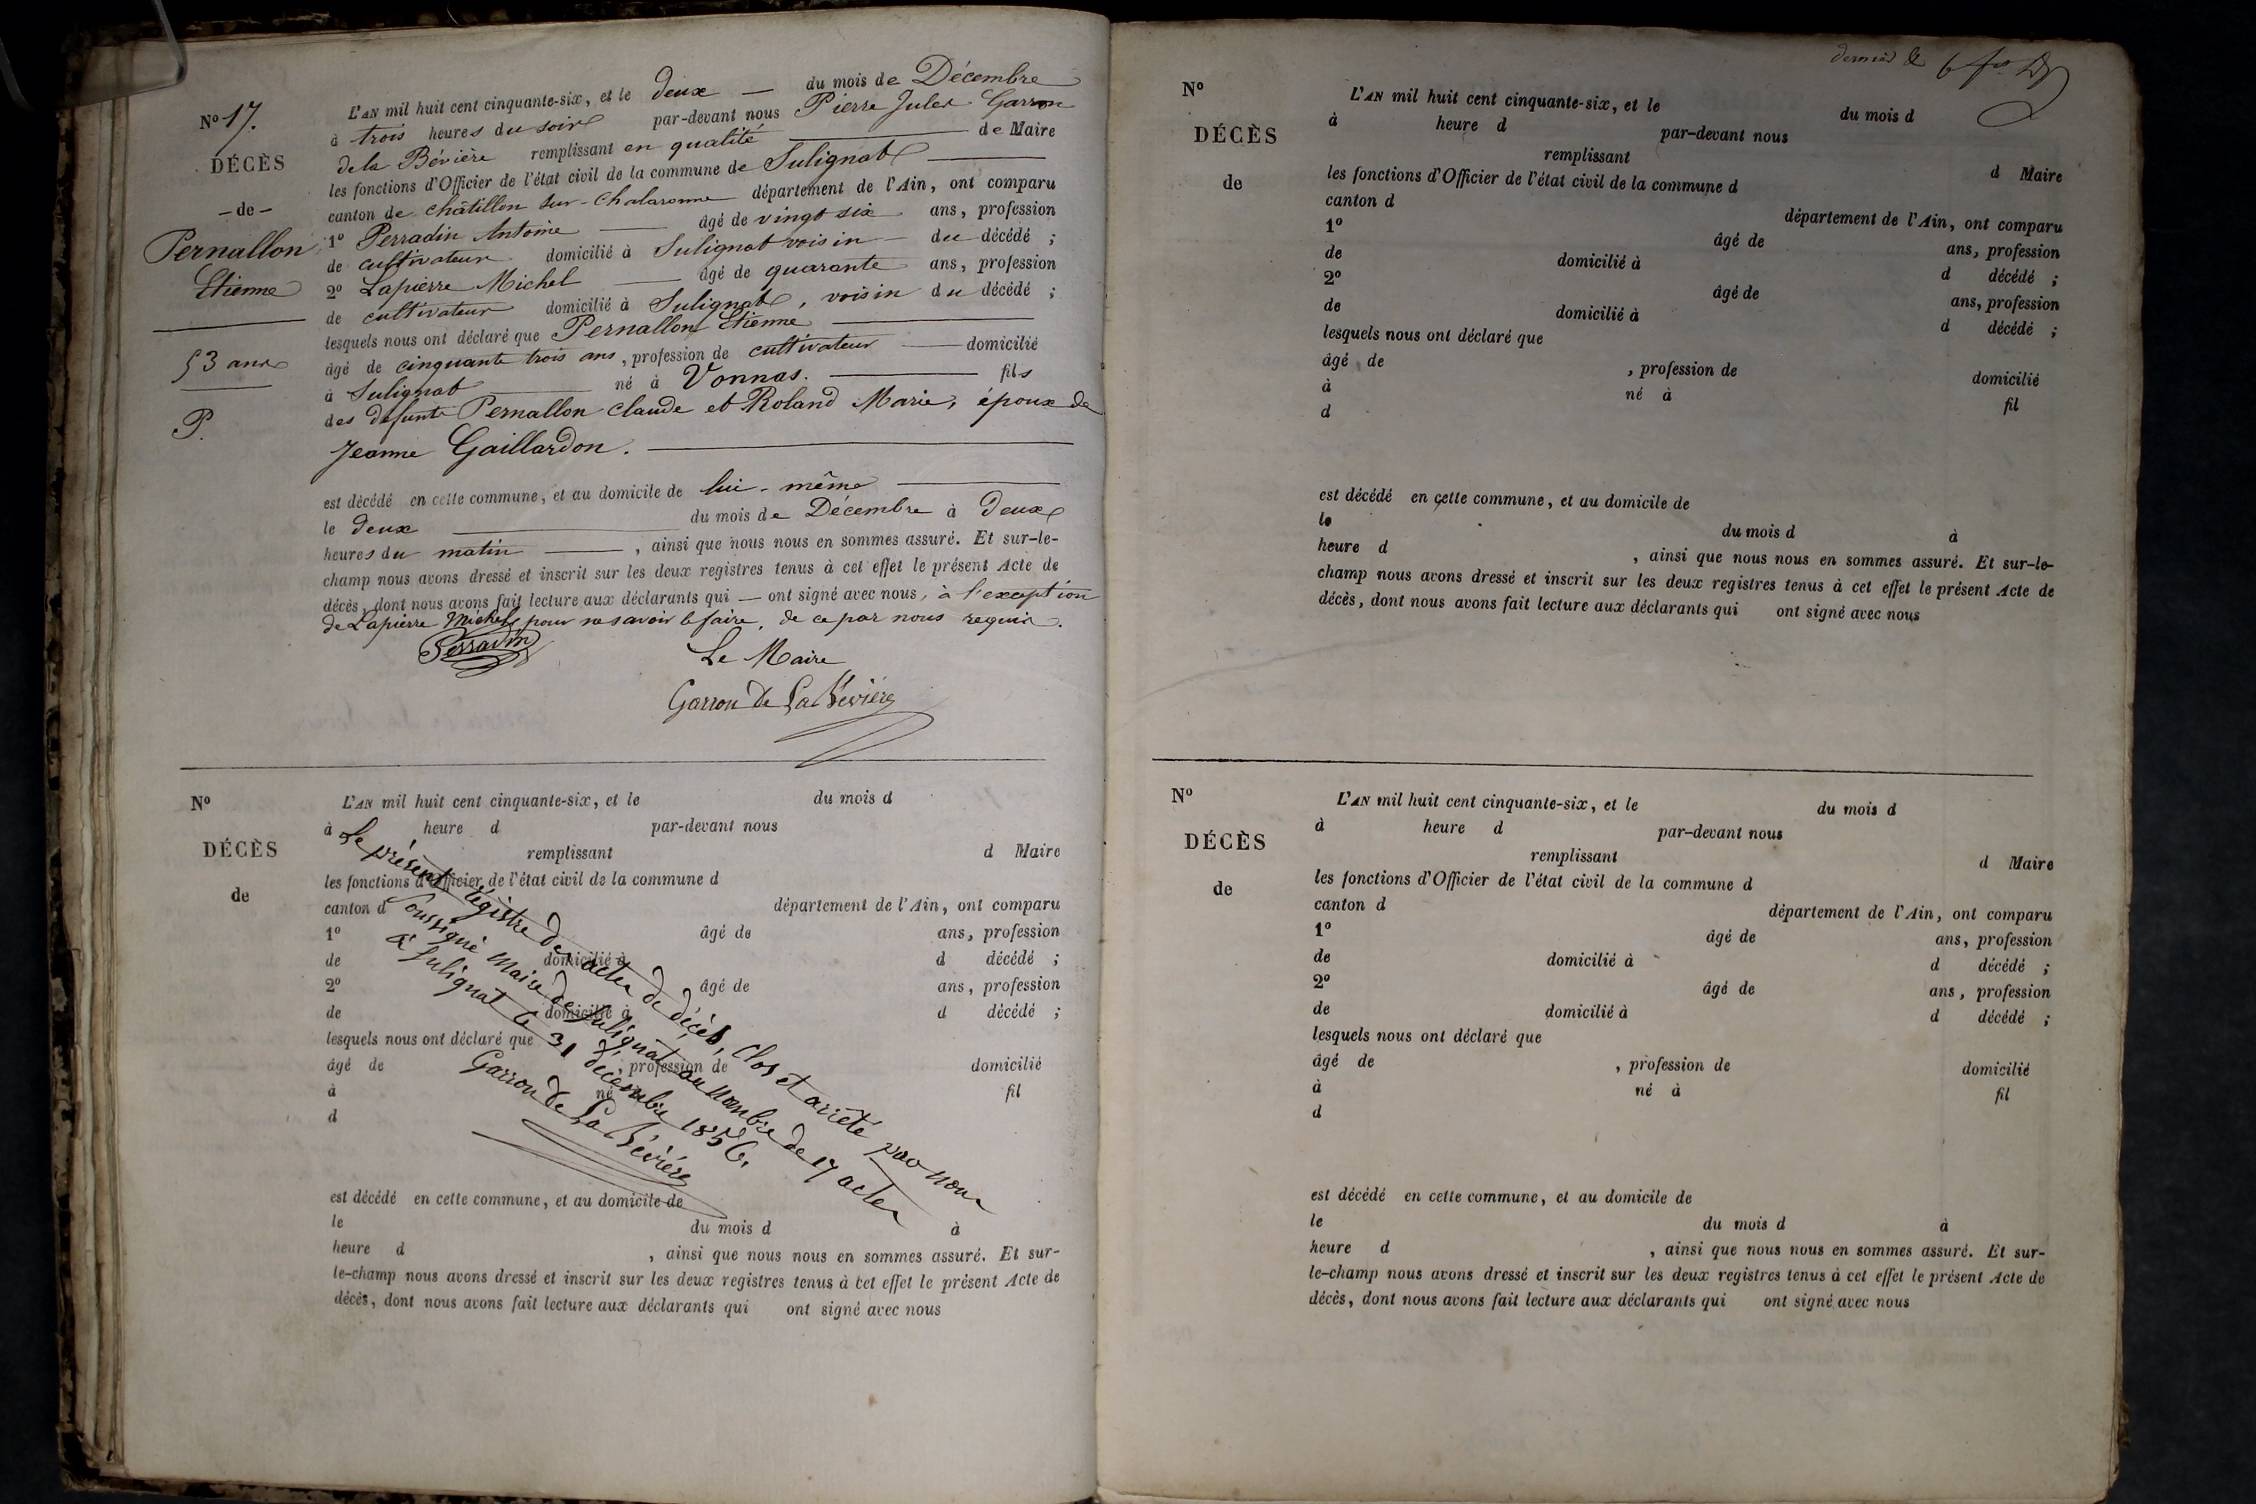 N° 17.
DÉCÈS
- de -
Pernallon
Etienne
53 ans
P.
L'AN mil huit cent cinquante-six, et le deux — du mois de Décembre
à trois heures du soir par-devant nous Pierre Jules Garron
de la Bévière remplissant en qualité — de Maire
les fonctions d'Officier de l'état civil de la commune de Sulignat —
canton de Châtillon sur-Chalaronne département de l'Ain, ont comparu
1° Perradin Antoine — âgé de vingt six ans, profession
de cultivateur domicilié à Sulignat voisin — du décédé ;
2° Lapierre Michel — âgé de quarante ans, profession
de cultivateur domicilié à Sulignat, voisin du décédé ;
lesquels nous ont déclaré que Pernallon Etienne —
âgé de cinquante trois ans, profession de cultivateur — domicilié
à Sulignat — né à Vonnas. — fils
des défunts Pernallon Claude et Roland Marie, époux de
Jeanne Gaillardon. —
est décédé en cette commune, et au domicile de lui-même —
le deux — du mois de Décembre à deux
heures du matin —, ainsi que nous nous en sommes assuré. Et sur-le-
champ nous avons dressé et inscrit sur les deux registres tenus à cet effet le présent Acte de
décès, dont nous avons fait lecture aux déclarants qui — ont signé avec nous, à l'exception
de Lapierre Michel pour ne savoir le faire, de ce par nous requis.
Perradin
Le Maire
Garron de La Bévière
N°
DÉCÈS
de
L'AN mil huit cent cinquante-six, et le du mois d
à heure d par-devant nous
remplissant d Maire
les fonctions d'Officier de l'état civil de la commune d
canton d département de l'Ain, ont comparu
1° âgé de ans, profession
de domicilié à d décédé ;
2° âgé de ans, profession
de domicilié à d décédé ;
lesquels nous ont déclaré que
âgé de , profession de domicilié
à né à fil
d
est décédé en cette commune, et au domicile de
le du mois d à
heure d , ainsi que nous nous en sommes assuré. Et sur-
le-champ nous avons dressé et inscrit sur les deux registres tenus à cet effet le présent Acte de
décès, dont nous avons fait lecture aux déclarants qui ont signé avec nous
Le présent régistre des actes de décès, Clos et arrêté par nous
Soussigné Maire de Sulignat au nombre de 17 actes
à Sulignat le 31 décembre 1856.
Garron de La Bévière
dernier
N°
DÉCÈS
de
L'AN mil huit cent cinquante-six, et le du mois d
à heure d par-devant nous
remplissant d Maire
les fonctions d'Officier de l'état civil de la commune d
canton d département de l'Ain, ont comparu
1° âgé de ans, profession
de domicilié à d décédé ;
2° âgé de ans, profession
de domicilié à d décédé ;
lesquels nous ont déclaré que
âgé de , profession de domicilié
à né à fil
d
est décédé en cette commune, et au domicile de
le du mois d à
heure d , ainsi que nous nous en sommes assuré. Et sur-le-
champ nous avons dressé et inscrit sur les deux registres tenus à cet effet le présent Acte de
décès, dont nous avons fait lecture aux déclarants qui ont signé avec nous
N°
DÉCÈS
de
L'AN mil huit cent cinquante-six, et le du mois d
à heure d par-devant nous
remplissant d Maire
les fonctions d'Officier de l'état civil de la commune d
canton d département de l'Ain, ont comparu
1° âgé de ans, profession
de domicilié à d décédé ;
2° âgé de ans, profession
de domicilié à d décédé ;
lesquels nous ont déclaré que
âgé de , profession de domicilié
à né à fil
d
est décédé en cette commune, et au domicile de
le du mois d à
heure d , ainsi que nous nous en sommes assuré. Et sur-
le-champ nous avons dressé et inscrit sur les deux registres tenus à cet effet le présent Acte de
décès, dont nous avons fait lecture aux déclarants qui ont signé avec nous